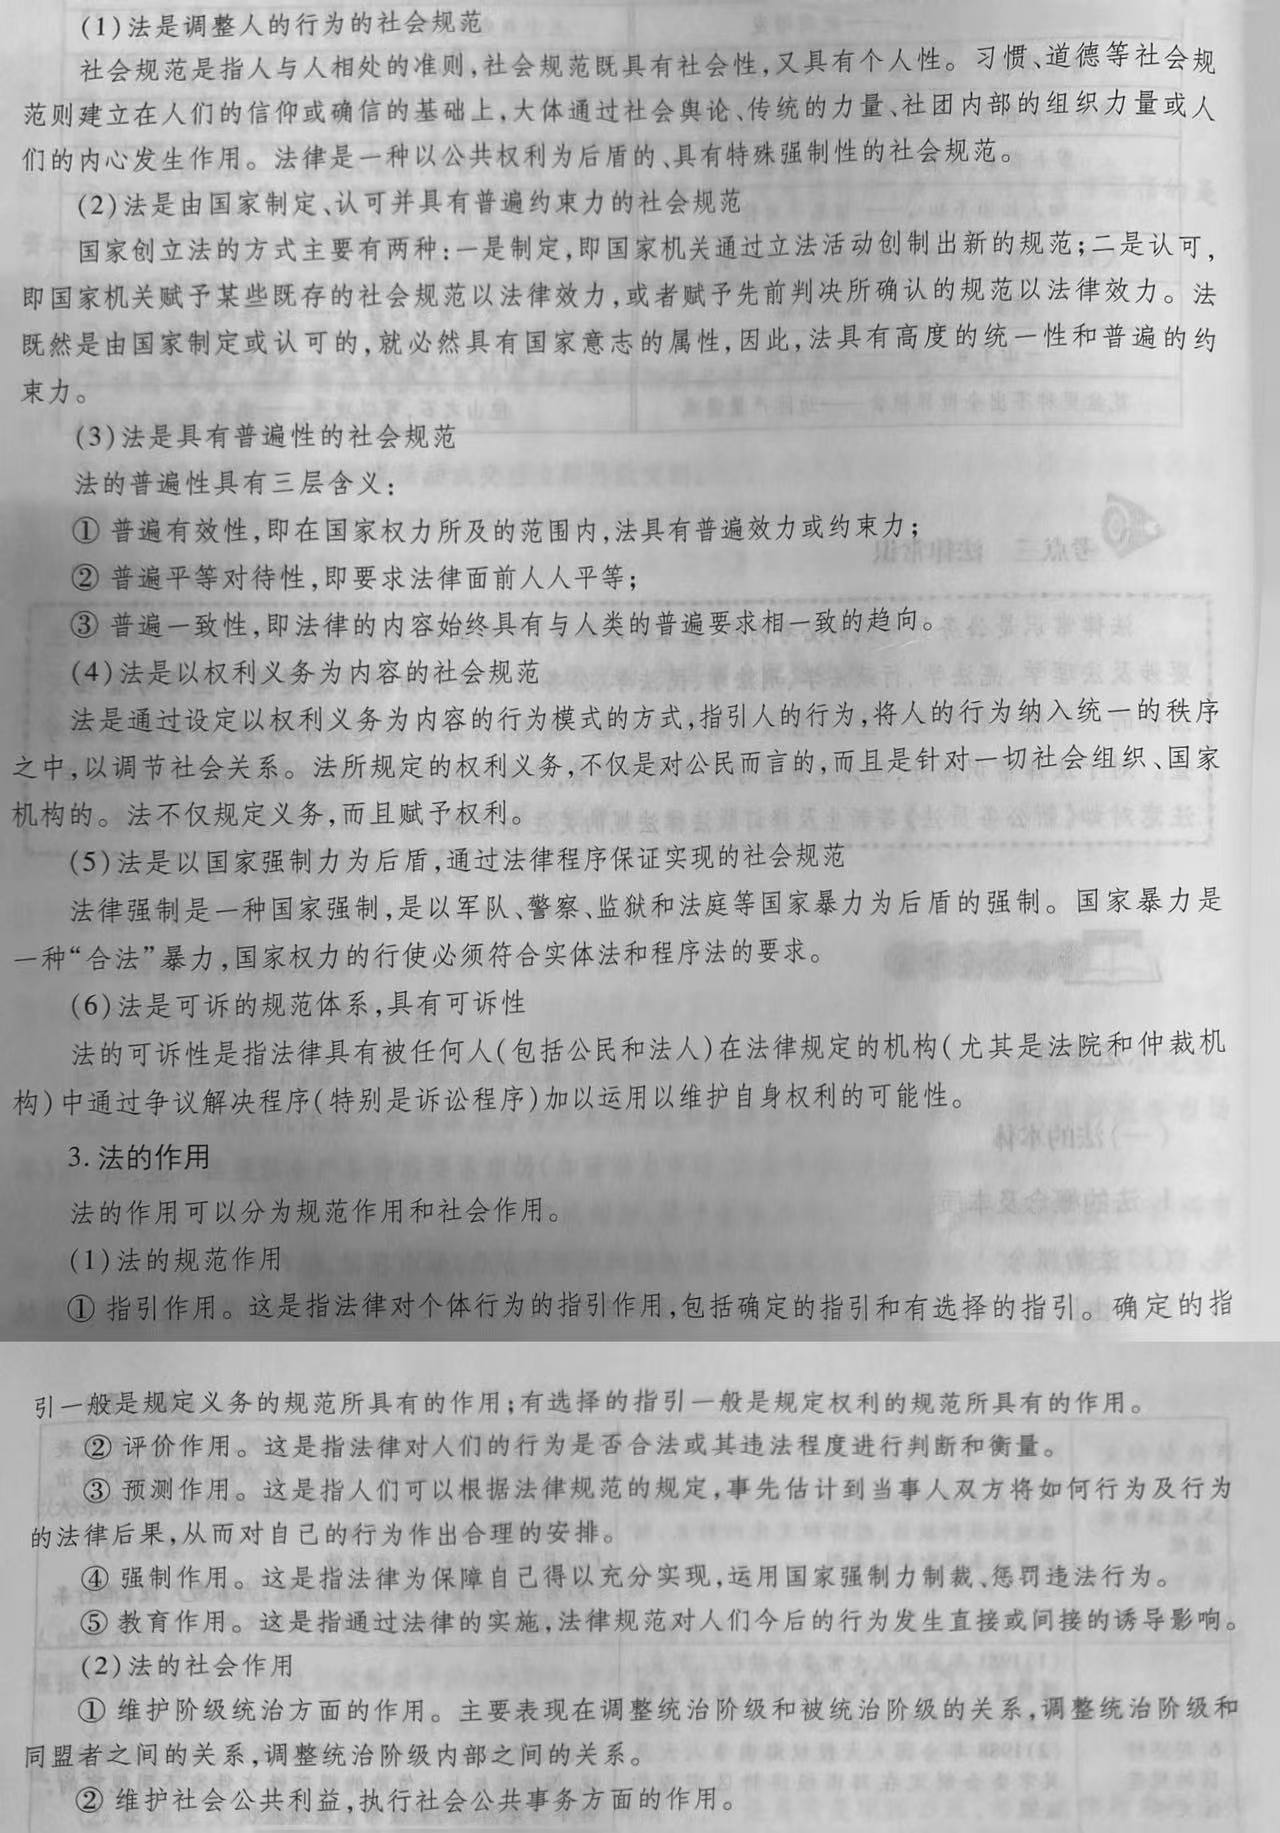 (1)法是调整人的行为的社会规范
社会规范是指人与人相处的准则,社会规范既具有社会性,又具有个人性。习惯、道德等社会规
范则建立在人们的信仰或确信的基础上,大体通过社会舆论、传统的力量、社团内部的组织力量或人
们的内心发生作用。法律是一种以公共权利为后盾的、具有特殊强制性的社会规范。
(2)法是由国家制定、认可并具有普遍约束力的社会规范
国家创立法的方式主要有两种:一是制定,即国家机关通过立法活动创制出新的规范;二是认可,
即国家机关赋予某些既存的社会规范以法律效力,或者赋予先前判决所确认的规范以法律效力。法
既然是由国家制定或认可的,就必然具有国家意志的属性,因此,法具有高度的统一性和普遍的约
束力。
(3)法是具有普遍性的社会规范
法的普遍性具有三层含义:
① 普遍有效性,即在国家权力所及的范围内,法具有普遍效力或约束力;
② 普遍平等对待性,即要求法律面前人人平等;
③ 普遍一致性,即法律的内容始终具有与人类的普遍要求相一致的趋向。
(4)法是以权利义务为内容的社会规范
法是通过设定以权利义务为内容的行为模式的方式,指引人的行为,将人的行为纳入统一的秩序
之中,以调节社会关系。法所规定的权利义务,不仅是对公民而言的,而且是针对一切社会组织、国家
机构的。法不仅规定义务,而且赋予权利。
(5)法是以国家强制力为后盾,通过法律程序保证实现的社会规范
法律强制是一种国家强制,是以军队、警察、监狱和法庭等国家暴力为后盾的强制。国家暴力是
一种“合法”暴力,国家权力的行使必须符合实体法和程序法的要求。
(6)法是可诉的规范体系,具有可诉性
法的可诉性是指法律具有被任何人(包括公民和法人)在法律规定的机构(尤其是法院和仲裁机
构)中通过争议解决程序(特别是诉讼程序)加以运用以维护自身权利的可能性。
3. 法的作用
法的作用可以分为规范作用和社会作用。
(1)法的规范作用
① 指引作用。这是指法律对个体行为的指引作用,包括确定的指引和有选择的指引。确定的指
引一般是规定义务的规范所具有的作用;有选择的指引一般是规定权利的规范所具有的作用。
② 评价作用。这是指法律对人们的行为是否合法或其违法程度进行判断和衡量。
③ 预测作用。这是指人们可以根据法律规范的规定,事先估计到当事人双方将如何行为及行为
的法律后果,从而对自己的行为作出合理的安排。
④ 强制作用。这是指法律为保障自己得以充分实现,运用国家强制力制裁、惩罚违法行为。
⑤ 教育作用。这是指通过法律的实施,法律规范对人们今后的行为发生直接或间接的诱导影响。
(2)法的社会作用
① 维护阶级统治方面的作用。主要表现在调整统治阶级和被统治阶级的关系,调整统治阶级和
同盟者之间的关系,调整统治阶级内部之间的关系。
② 维护社会公共利益,执行社会公共事务方面的作用。